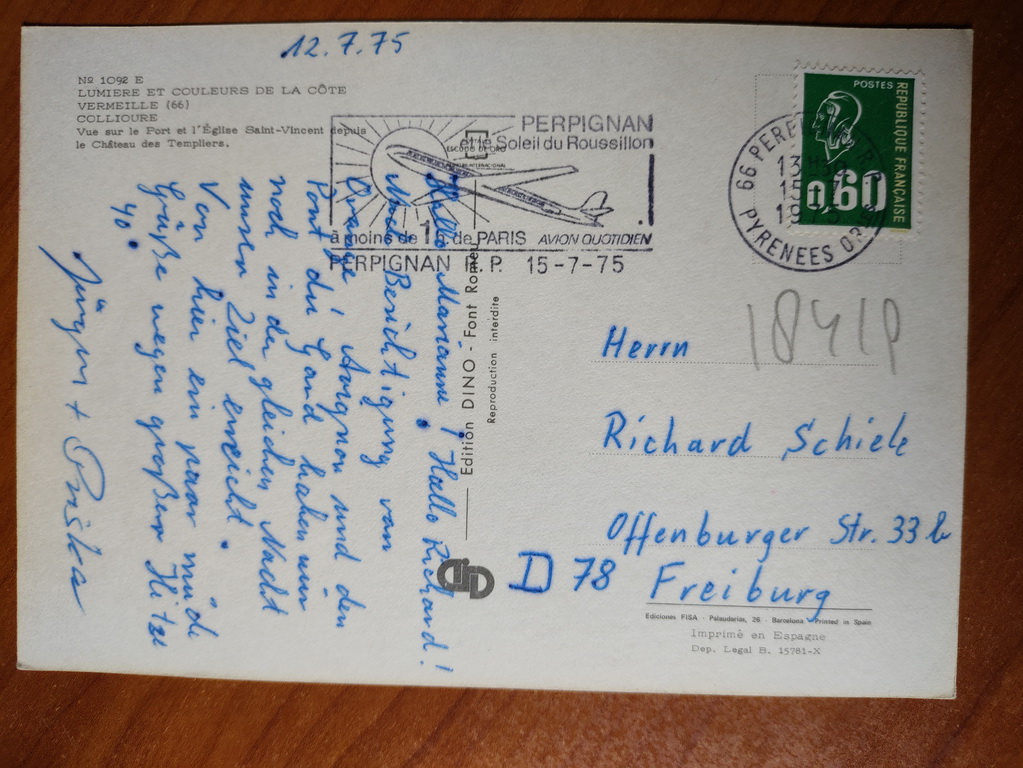 12.7.75
Nº 1092 E
LUMIERE ET COULEURS DE LA CÔTE
VERMEILLE (66)
COLLIOURE
Vue sur le Port et l'Église Saint-Vincent depuis
le Château des Templiers.
PERPIGNAN
et le Soleil du Roussillon
à moins de 1h. de PARIS AVION QUOTIDIEN
PERPIGNAN R.P. 15-7-75
POSTES
REPUBLIQUE FRANÇAISE
0,60
13H30
15-7
19
PYRENEES OR
Hallo Marianne! Hallo Richard!
Nach Besichtigung von
Orange, Avignon und den
Pont du Gard haben wir
noch in der gleichen Nacht
unser Ziel erreicht.
Von hier ein paar müde
Grüße wegen großer Hitze
40°
Jürgen + Priska
Edition DINO - Font Romeu
Reproduction interdite
18419
Herrn
Richard Schiele
Offenburger Str. 33 b
D 78 Freiburg
Ediciones FISA - Palaudarias, 26 - Barcelona - Printed in Spain
Imprimé en Espagne
Dep. Legal B. 15781-X